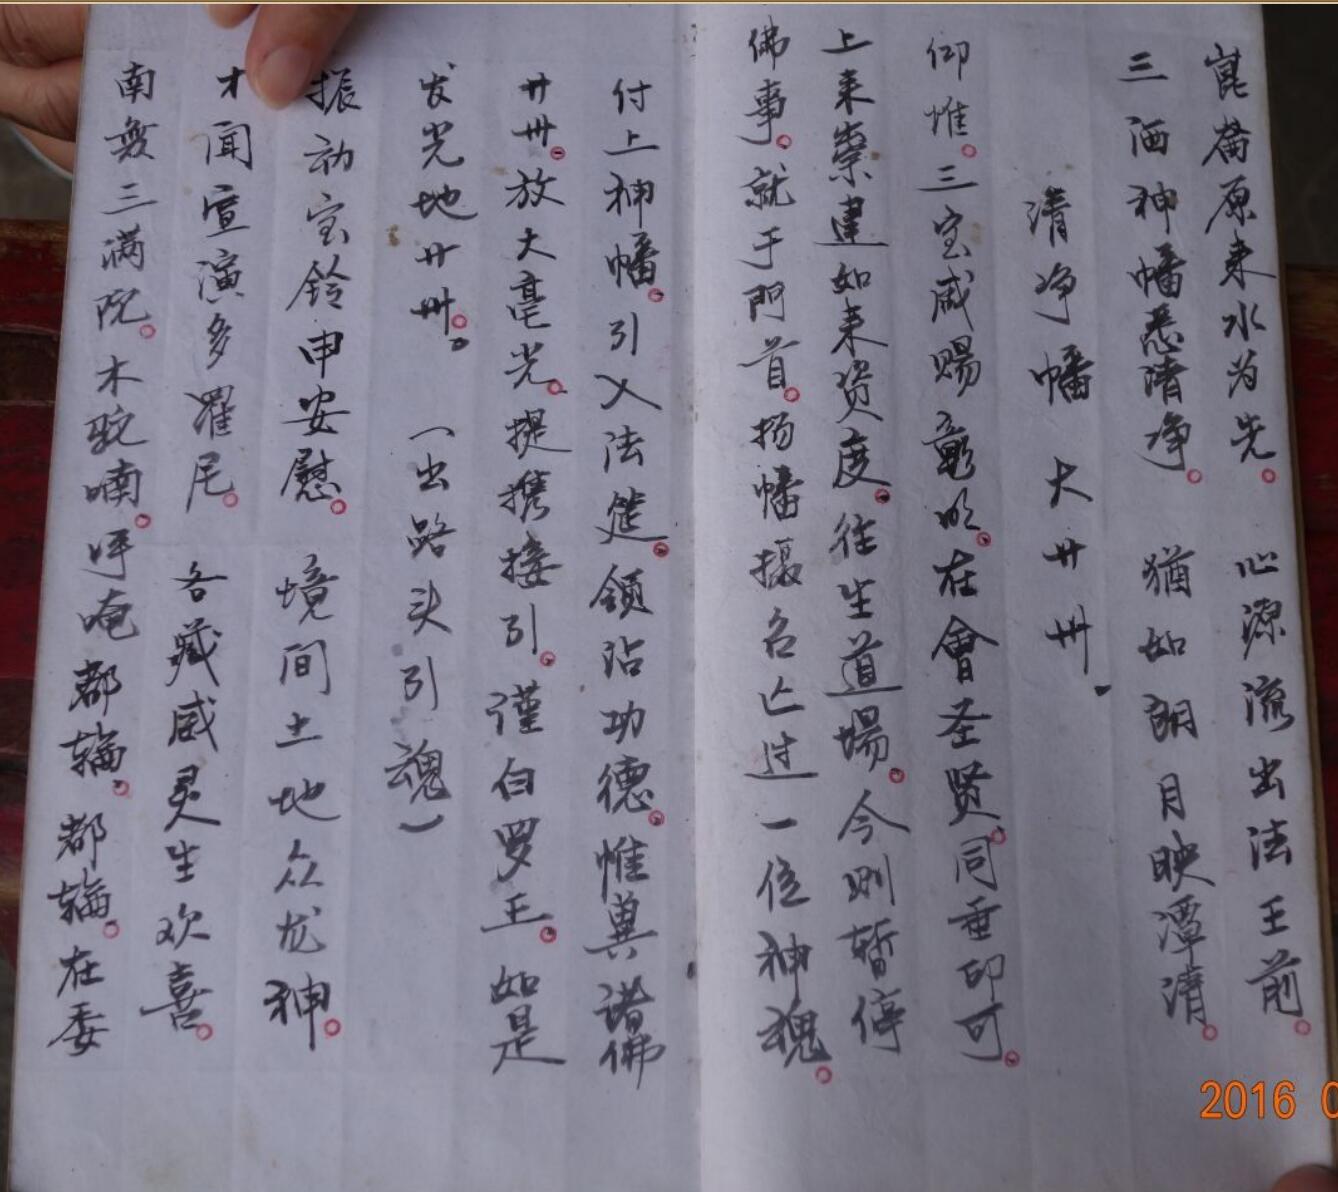 崑崙原来水为先。 心源流出法王前。
三洒神幡悉清净。 犹如朗月映潭清。
清净幡 大卄卌
仰惟。三宝威赐彰明。在會圣贤。同垂印可。
上来崇建如来资度。往生道場。今则暂停
佛事。就于門首。扬幡摄召亡过一位神魂。
付上神幡。引入法筵。領沾功德。惟兾诸佛
卄卌。放大毫光。提携接引。谨白罗王。如是
发光地卄卌。 (出路头引魂)
振动宝鈴申安慰。 境间土地众龙神。
才聞宣演多羅尼。 各藏威灵生欢喜。
南無三满陀。木驼喃。吽唵都𨍭。都𨍭。在委
2016 0